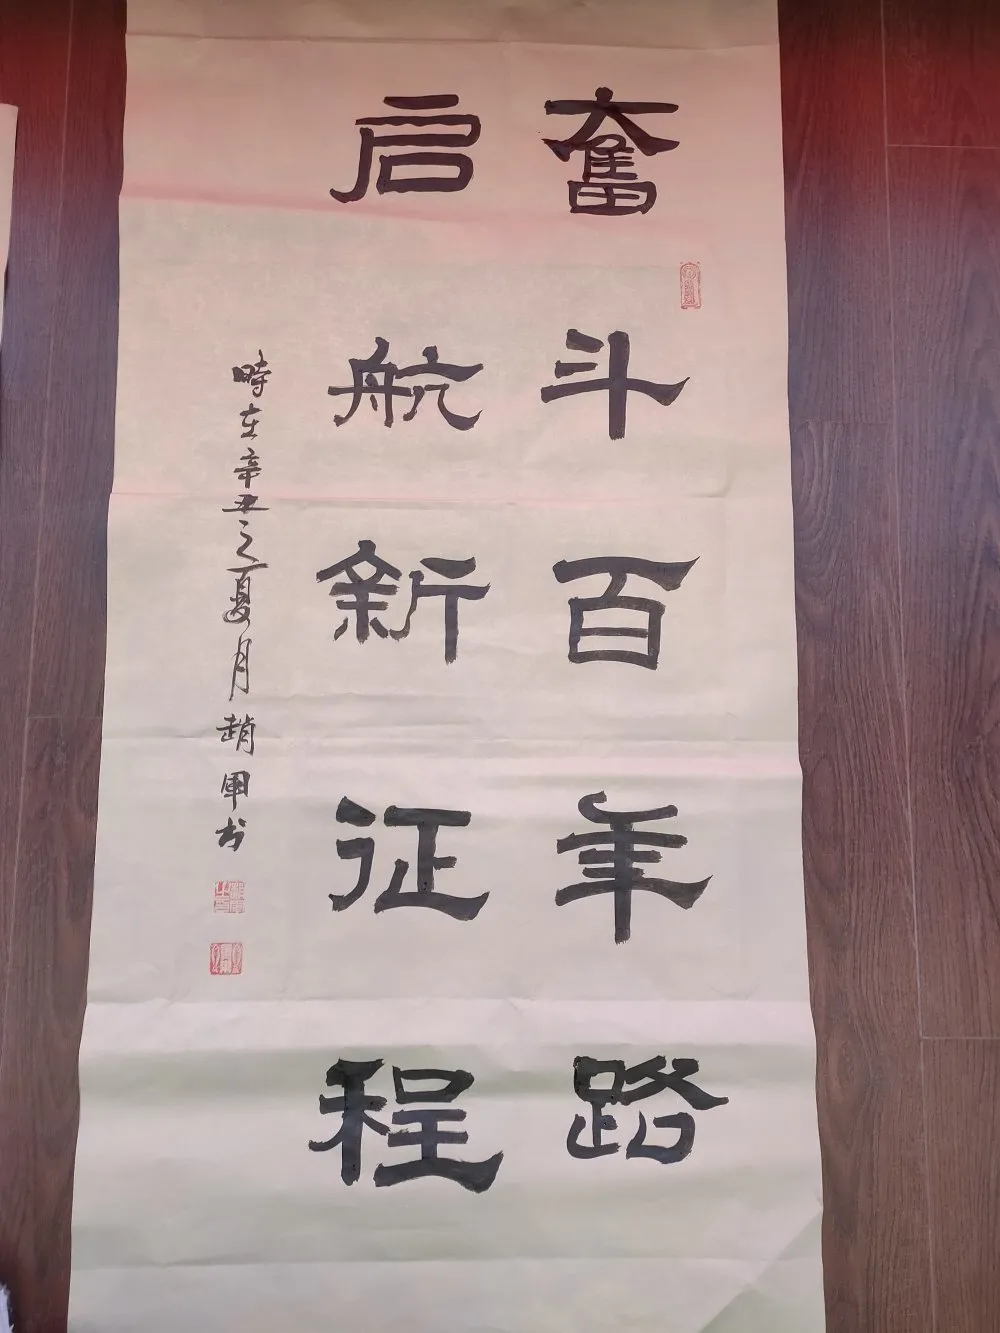 奮斗百年路
启航新征程
時在辛丑之夏月趙軍书